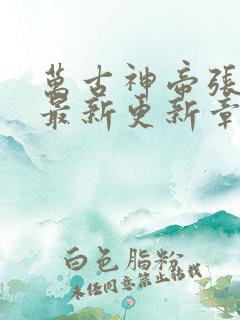 萬古神帝張
最新更新章
白色脂粉
未经同意禁止转载